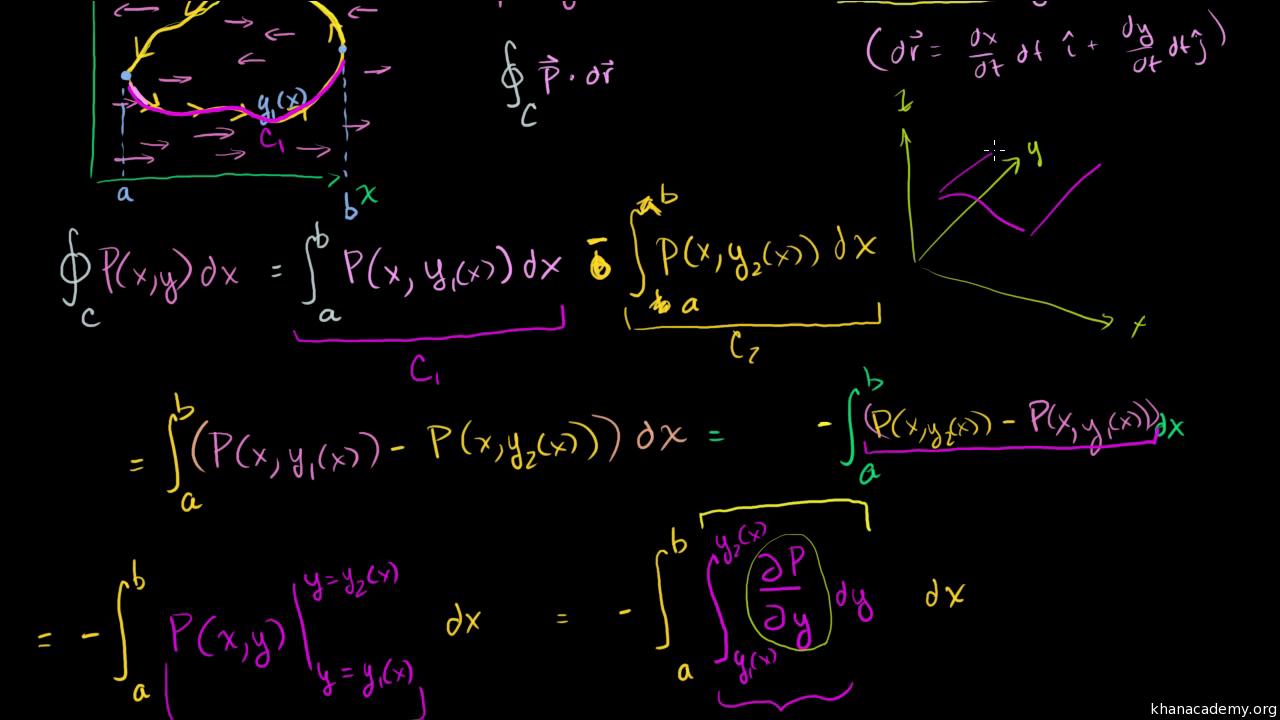 (dr⃗ = dx/dt dt î + dy/dt dt ĵ)
∮_C P⃗ · dr⃗
y₁(x)
C₁
a b x
z
y
x
∮_C P(x,y) dx = ∫_a^b P(x, y₁(x)) dx − ∫_a^b P(x, y₂(x)) dx
C₁ C₂
= ∫_a^b (P(x, y₁(x)) − P(x, y₂(x))) dx = − ∫_a^b (P(x, y₂(x)) − P(x, y₁(x))) dx
= − ∫_a^b P(x,y) |_{y = y₁(x)}^{y = y₂(x)} dx = − ∫_a^b ∫_{y₁(x)}^{y₂(x)} ∂P/∂y dy dx
khanacademy.org